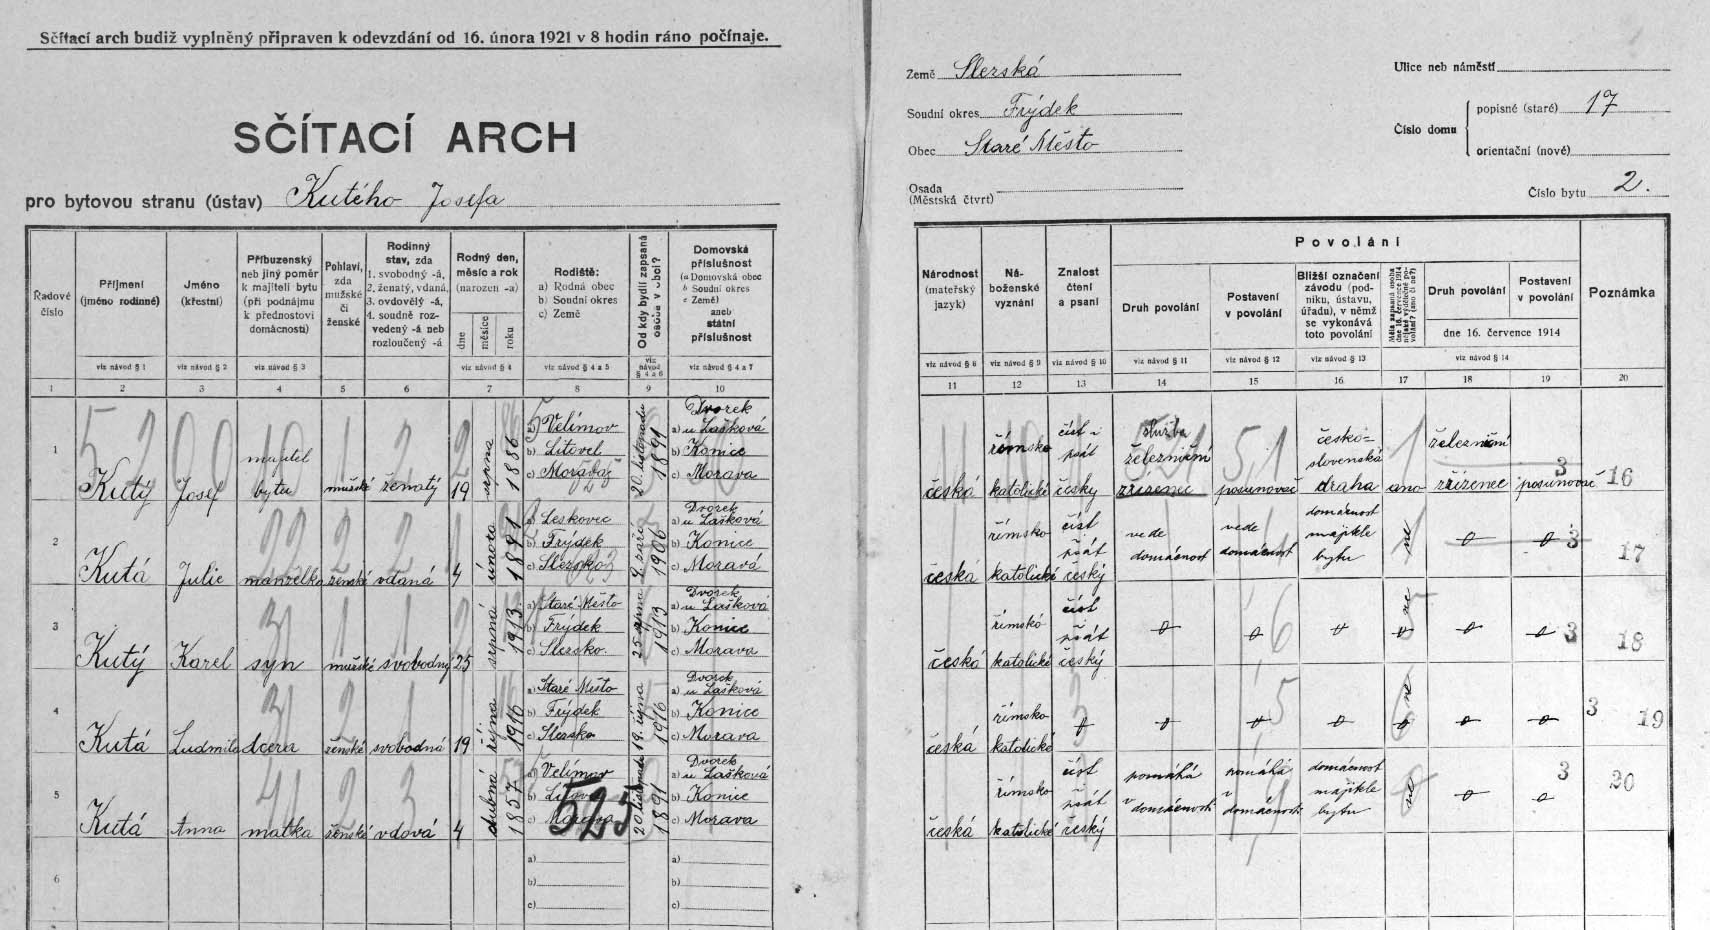 Sčítací arch budiž vyplněný připraven k odevzdání od 16. února 1921 v 8 hodin ráno počínaje.
SČÍTACÍ ARCH
pro bytovou stranu (ústav) Kutého Josefa
Řadové číslo
Příjmení (jméno rodinné)
Jméno (křestní)
Příbuzenský neb jiný poměr k majiteli bytu (při podnájmu k přednostovi domácnosti)
Pohlaví, zda mužské či ženské
Rodinný stav, zda 1. svobodný -á, 2. ženatý, vdaná, 3. ovdovělý -á, 4. soudně rozvedený -á neb rozloučený -á
Rodný den, měsíc a rok (narozen -a)
dne měsíce roku
Rodiště: a) Rodná obec b) Soudní okres c) Země
Od kdy bydlí zapsaná osoba v obci?
Domovská příslušnost (a Domovská obec b Soudní okres c Země) aneb státní příslušnost
viz návod § 1
viz návod § 2
viz návod § 3
viz návod § 4
viz návod § 4 a 5
viz návod § 4 a 6
viz návod § 4 a 7
1 2 3 4 5 6 7 8 9 10
1 Kutý Josef majitel bytu mužské ženatý 19 srpna 1886 a) Velímov b) Litovel c) Morava 20. listopadu 1891 a) Dvorek u Lašková b) Konice c) Morava
2 Kutá Julie manželka ženské vdaná 4 února 1891 a) Leskovec b) Frýdek c) Slezsko 9. září 1906 a) Dvorek u Lašková b) Konice c) Morava
3 Kutý Karel syn mužské svobodný 25 srpna 1913 a) Staré Město b) Frýdek c) Slezsko 25 srpna 1913 a) Dvorek u Lašková b) Konice c) Morava
4 Kutá Ludmila dcera ženské svobodná 19 října 1916 a) Staré Město b) Frýdek c) Slezsko 19. října 1916 a) Dvorek u Lašková b) Konice c) Morava
5 Kutá Anna matka ženské vdova 4 dubna 1857 a) Velímov b) Litovel c) Morava 525 20 listopadu 1891 a) Dvorek u Lašková b) Konice c) Morava
6 a) b) c) a) b) c)
Země Slezská
Soudní okres Frýdek
Obec Staré Město
Osada (Městská čtvrť)
Ulice neb náměstí
Číslo domu
popisné (staré) 17
orientační (nové)
Číslo bytu 2.
Národnost (mateřský jazyk)
Náboženské vyznání
Znalost čtení a psaní
Povolání
Druh povolání
Postavení v povolání
Bližší označení závodu (podniku, ústavu, úřadu), v němž se vykonává toto povolání
Druh povolání
Postavení v povolání
dne 16. července 1914
Poznámka
viz návod § 8
viz návod § 9
viz návod § 10
viz návod § 11
viz návod § 12
viz návod § 13
viz návod § 14
11 12 13 14 15 16 17 18 19 20
česká římsko katolické číst i psát česky služba železniční zřízenec posunovač česko-slovenská draha ano železniční zřízenec posunovač 3 16
česká římsko katolické číst psát český vede domácnost vede domácnost domácnost majitele bytu ne 3 17
česká římskó katolické číst psát český ne 3 18
česká římsko katolické ne 3 19
česká římsko katolické číst psát český pomáhá v domácnosti pomáhá v domácnosti domácnost majitele bytu ne 3 20